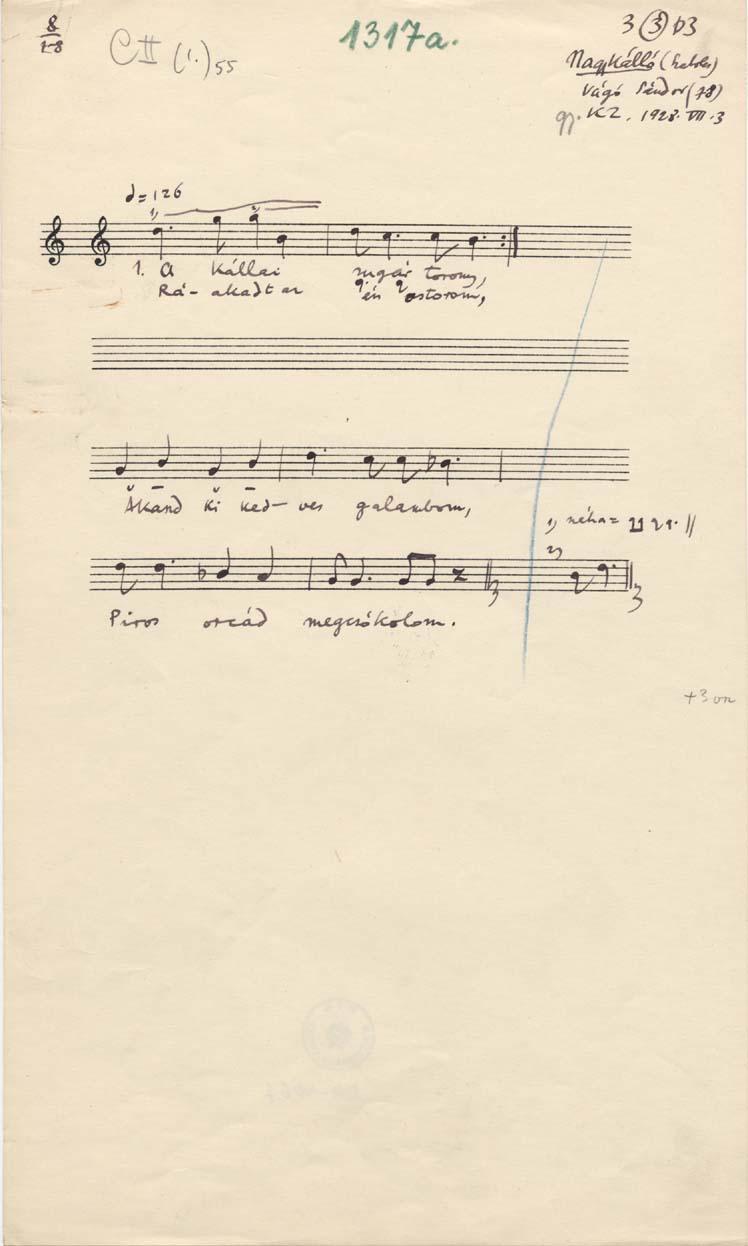 8
1-8
C II (1.) 55
1317a.
3 (3) b3
Nagykálló (Szabolcs)
Vágó Sándor (78)
gy. KZ. 1928. VII. 3
= 126
1) 2)
1. A kállai sugár torony,
Rá- akadt az én ostorom,
Akand ki ked- ves galambom,
1) néha =
2)
Piros orcád megcsókolom.